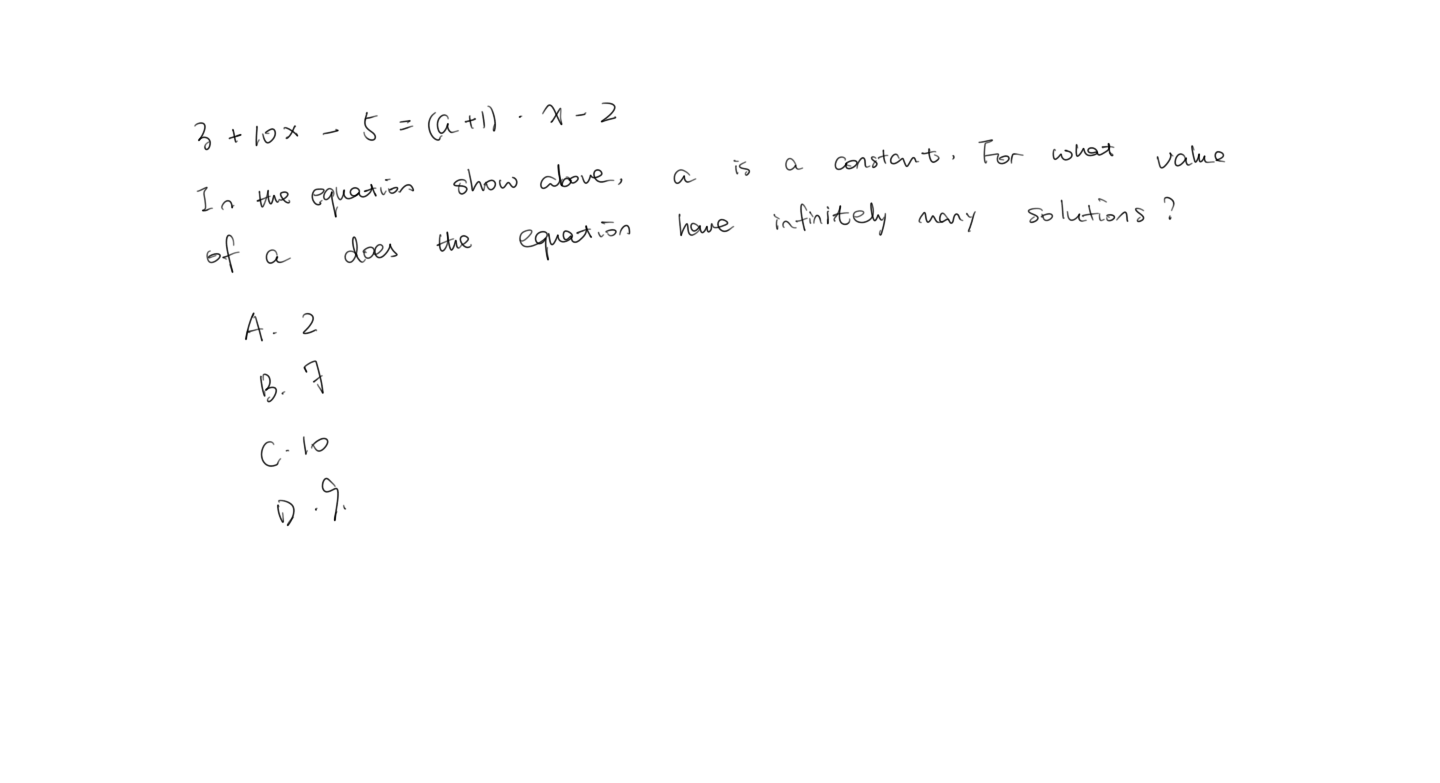 3 + 10x - 5 = (a+1) · x - 2
In the equation show above, a is a constant. For what value
of a does the equation have infinitely many solutions?
A. 2
B. 7
C. 10
D. 9.